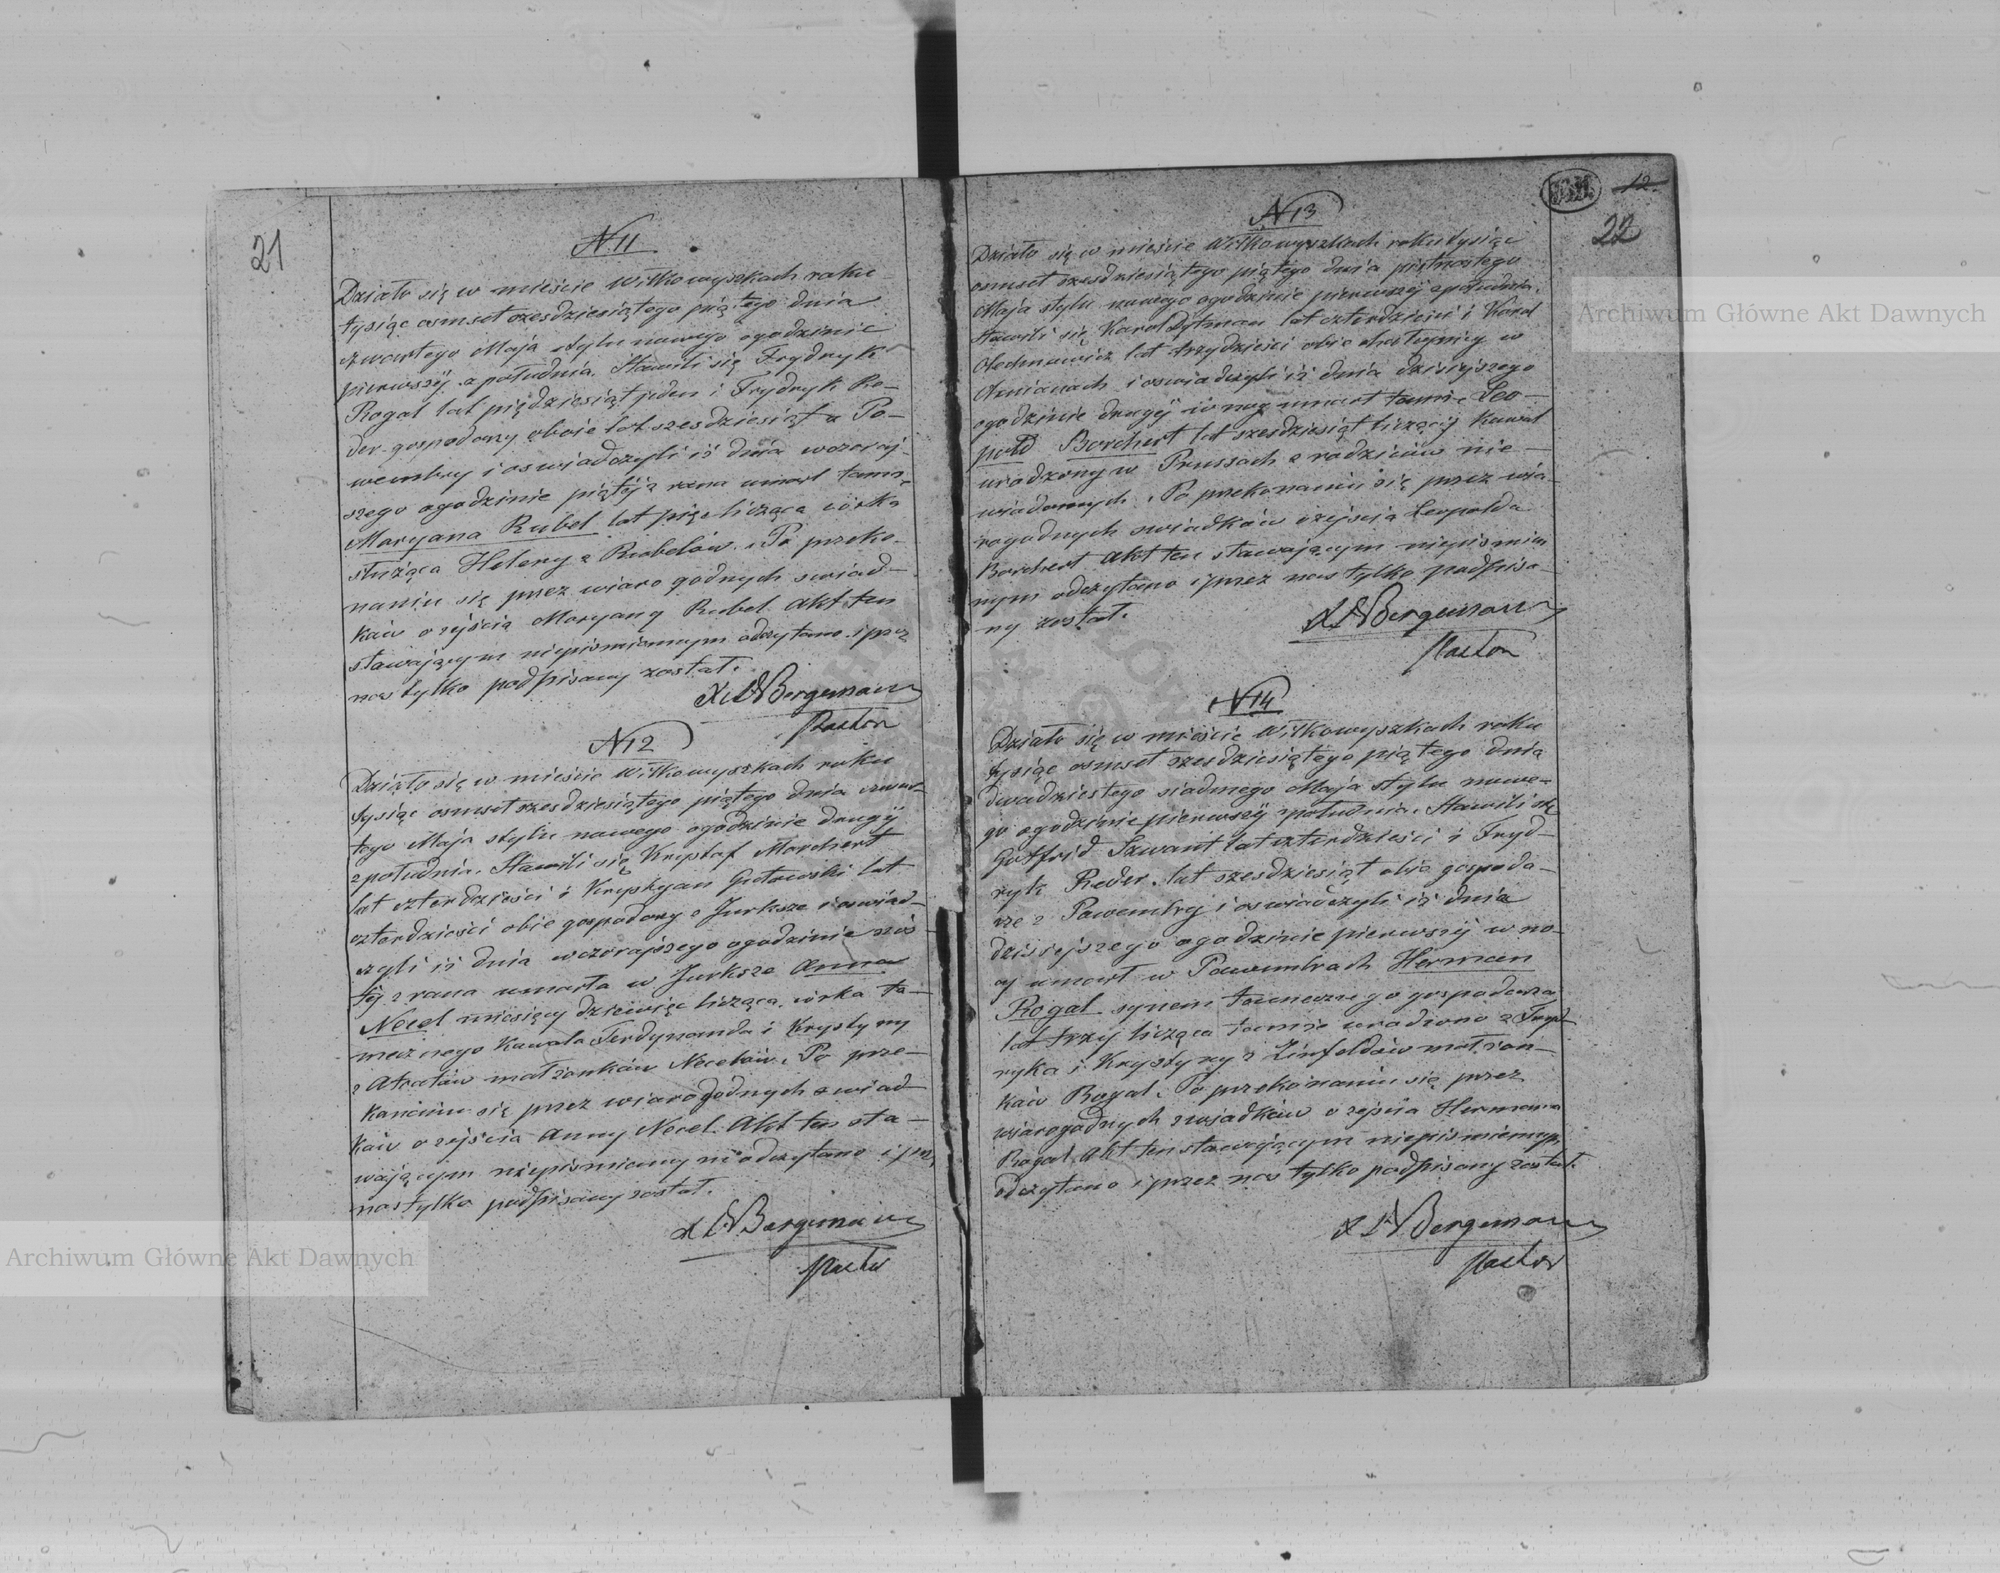 21
N 11
Działo się w mieście Wiłkowyszkach roku
tysiąc osmset szesdziesiątego piątego dnia
czwartego Maja stylu nowego ogodzinie
pierwszéj z południa. Stawili się Frydryk
Rogal lat piędziesiąt jeden i Frydryk Re-
der gospodarzy oboie lat szesdziesiąt z Po-
wembry i oswiadczyli iż dnia wczoraj-
szego ogodzinie piątéj z rana umarł tamże
Maryana Rubel lat pięc licząca córka
służąca Heleny z Rubelów. Po przeko-
naniu się przez wiaro godnych swiad-
ków o zejściu Maryany Rubel Akt ten
stawającym niepismiennym odczytano i przez
nas tylko podpisany został.
X LA Bergemann
Pastor
N 12
Działo się w mieście Wiłkowyszkach roku
tysiąc osmset szesdziesiątego piątego dnia czwar-
tego Maja stylu nowego ogodzinie drugiéj
z południa. Stawili się Krysztof Marchert
lat czterdzieści i Krystyan Gutowski lat
czterdzieści obie gospodarzy z Jurksze i oswiad-
czyli iż dnia wczorajszego ogodzinie szós-
téj z rana umarła w Jurksze Anna
Necel miesięcy dziewięc licząca córka ta-
mecznego Kowala Ferdynanda i Krystyny
z małżonków Necelów. Po prze-
konaniu się przez wiarogodnych swiad
ków o zejściu Anny Necel Akt ten sta-
wającym niepismiennym odczytano i przez
nas tylko podpisany został.
X LA Bergemann
Pastor
12.
22
N 13
Działo się w mieście Wiłkowyszkach roku tysiąc
osmset szesdziesiątego piątego dnia piętnastego
Maja stylu nowego ogodzinie pierwszéj z południa.
Stawili się Karol Dytman lat czterdzieści i Karol
lat trzydzieści obie w
i oswiadczyli iż dnia dzisiejszego
ogodzinie drugiéj w nocy umarł tamże Leo-
pold Borchert lat szesdziesiąt liczący Kowal
urodzony w Prussach z rodziców nie-
wiadomych. Po przekonaniu się przez wia-
rogodnych swiadków o zejściu Leopolda
Borchert Akt ten stawającym niepismien
nym odczytano i przez nas tylko podpisa-
ny został.
X LA Bergemann
Pastor
N 14
Działo się w mieście Wiłkowyszkach roku
tysiąc osmset szesdziesiątego piątego dnia
dwadziestego siodmego Maja stylu nowe-
go ogodzinie pierwszéj z południa. Stawili się
Gotfrid Szwant lat czterdzieści i Fryd-
ryk Reder lat szesdziesiąt obie gospoda-
rze z Powembry i oswiadczyli iż dnia
dzisiejszego ogodzinie pierwszéj w no-
cy umarł w Powembrach Herman
Rogal synem tamecznego gospodarza
lat trzy licząca tamże urodzono z Fryd
ryka i Krystyny z Linfeldów małżon-
ków Rogal. Po przekonaniu się przez
wiarogodnych swiadków o zejściu Hermana
Rogal Akt ten stawającym niepismiennym
odczytano i przez nas tylko podpisany został.
X LA Bergemann
Pastor
Archiwum Główne Akt Dawnych
Archiwum Główne Akt Dawnych